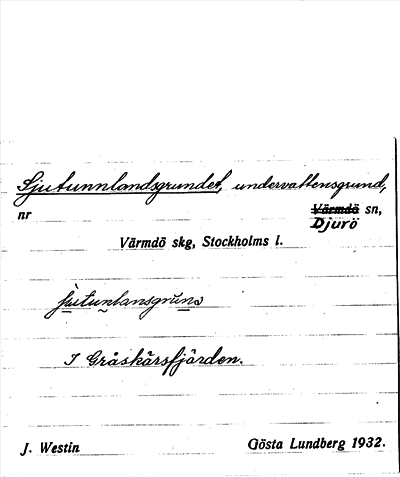 Sjutunnlandsgrundet, undervattensgrund,
nr Värmdö sn,
Djurö
Värmdö skg, Stockholms l.
I Gråskärsfjärden.
J. Westin Gösta Lundberg 1932.